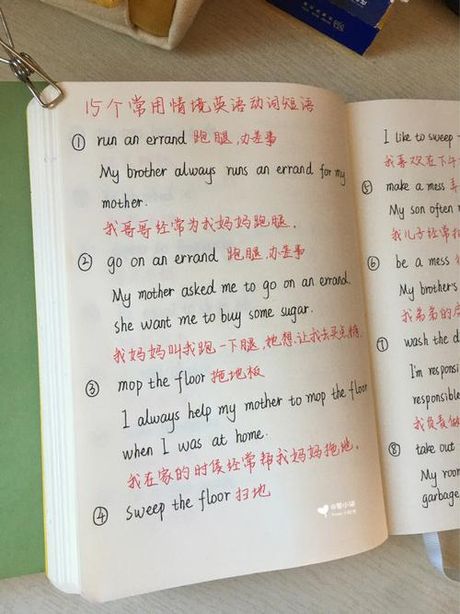 15个常用情境英语动词短语
① run an errand 跑腿,办差事
My brother always runs an errand for my
mother.
我哥哥经常为我妈妈跑腿。
② go on an errand 跑腿,办差事
My mother asked me to go on an errand.
she want me to buy some sugar.
我妈妈叫我跑一下腿,她想让我去买点糖.
③ mop the floor 拖地板
I always help my mother to mop the floor
when I was at home.
我在家的时候经常帮我妈妈拖地。
④ sweep the floor 扫地
I like to sweep
我喜欢在下午
⑤ make a mess 弄
My son often
我儿子经常
⑥ be a mess
My brother's
我弟弟的
⑦ wash the d
I'm responsi
responsible
我负责做
⑧ take out
My room
garbage